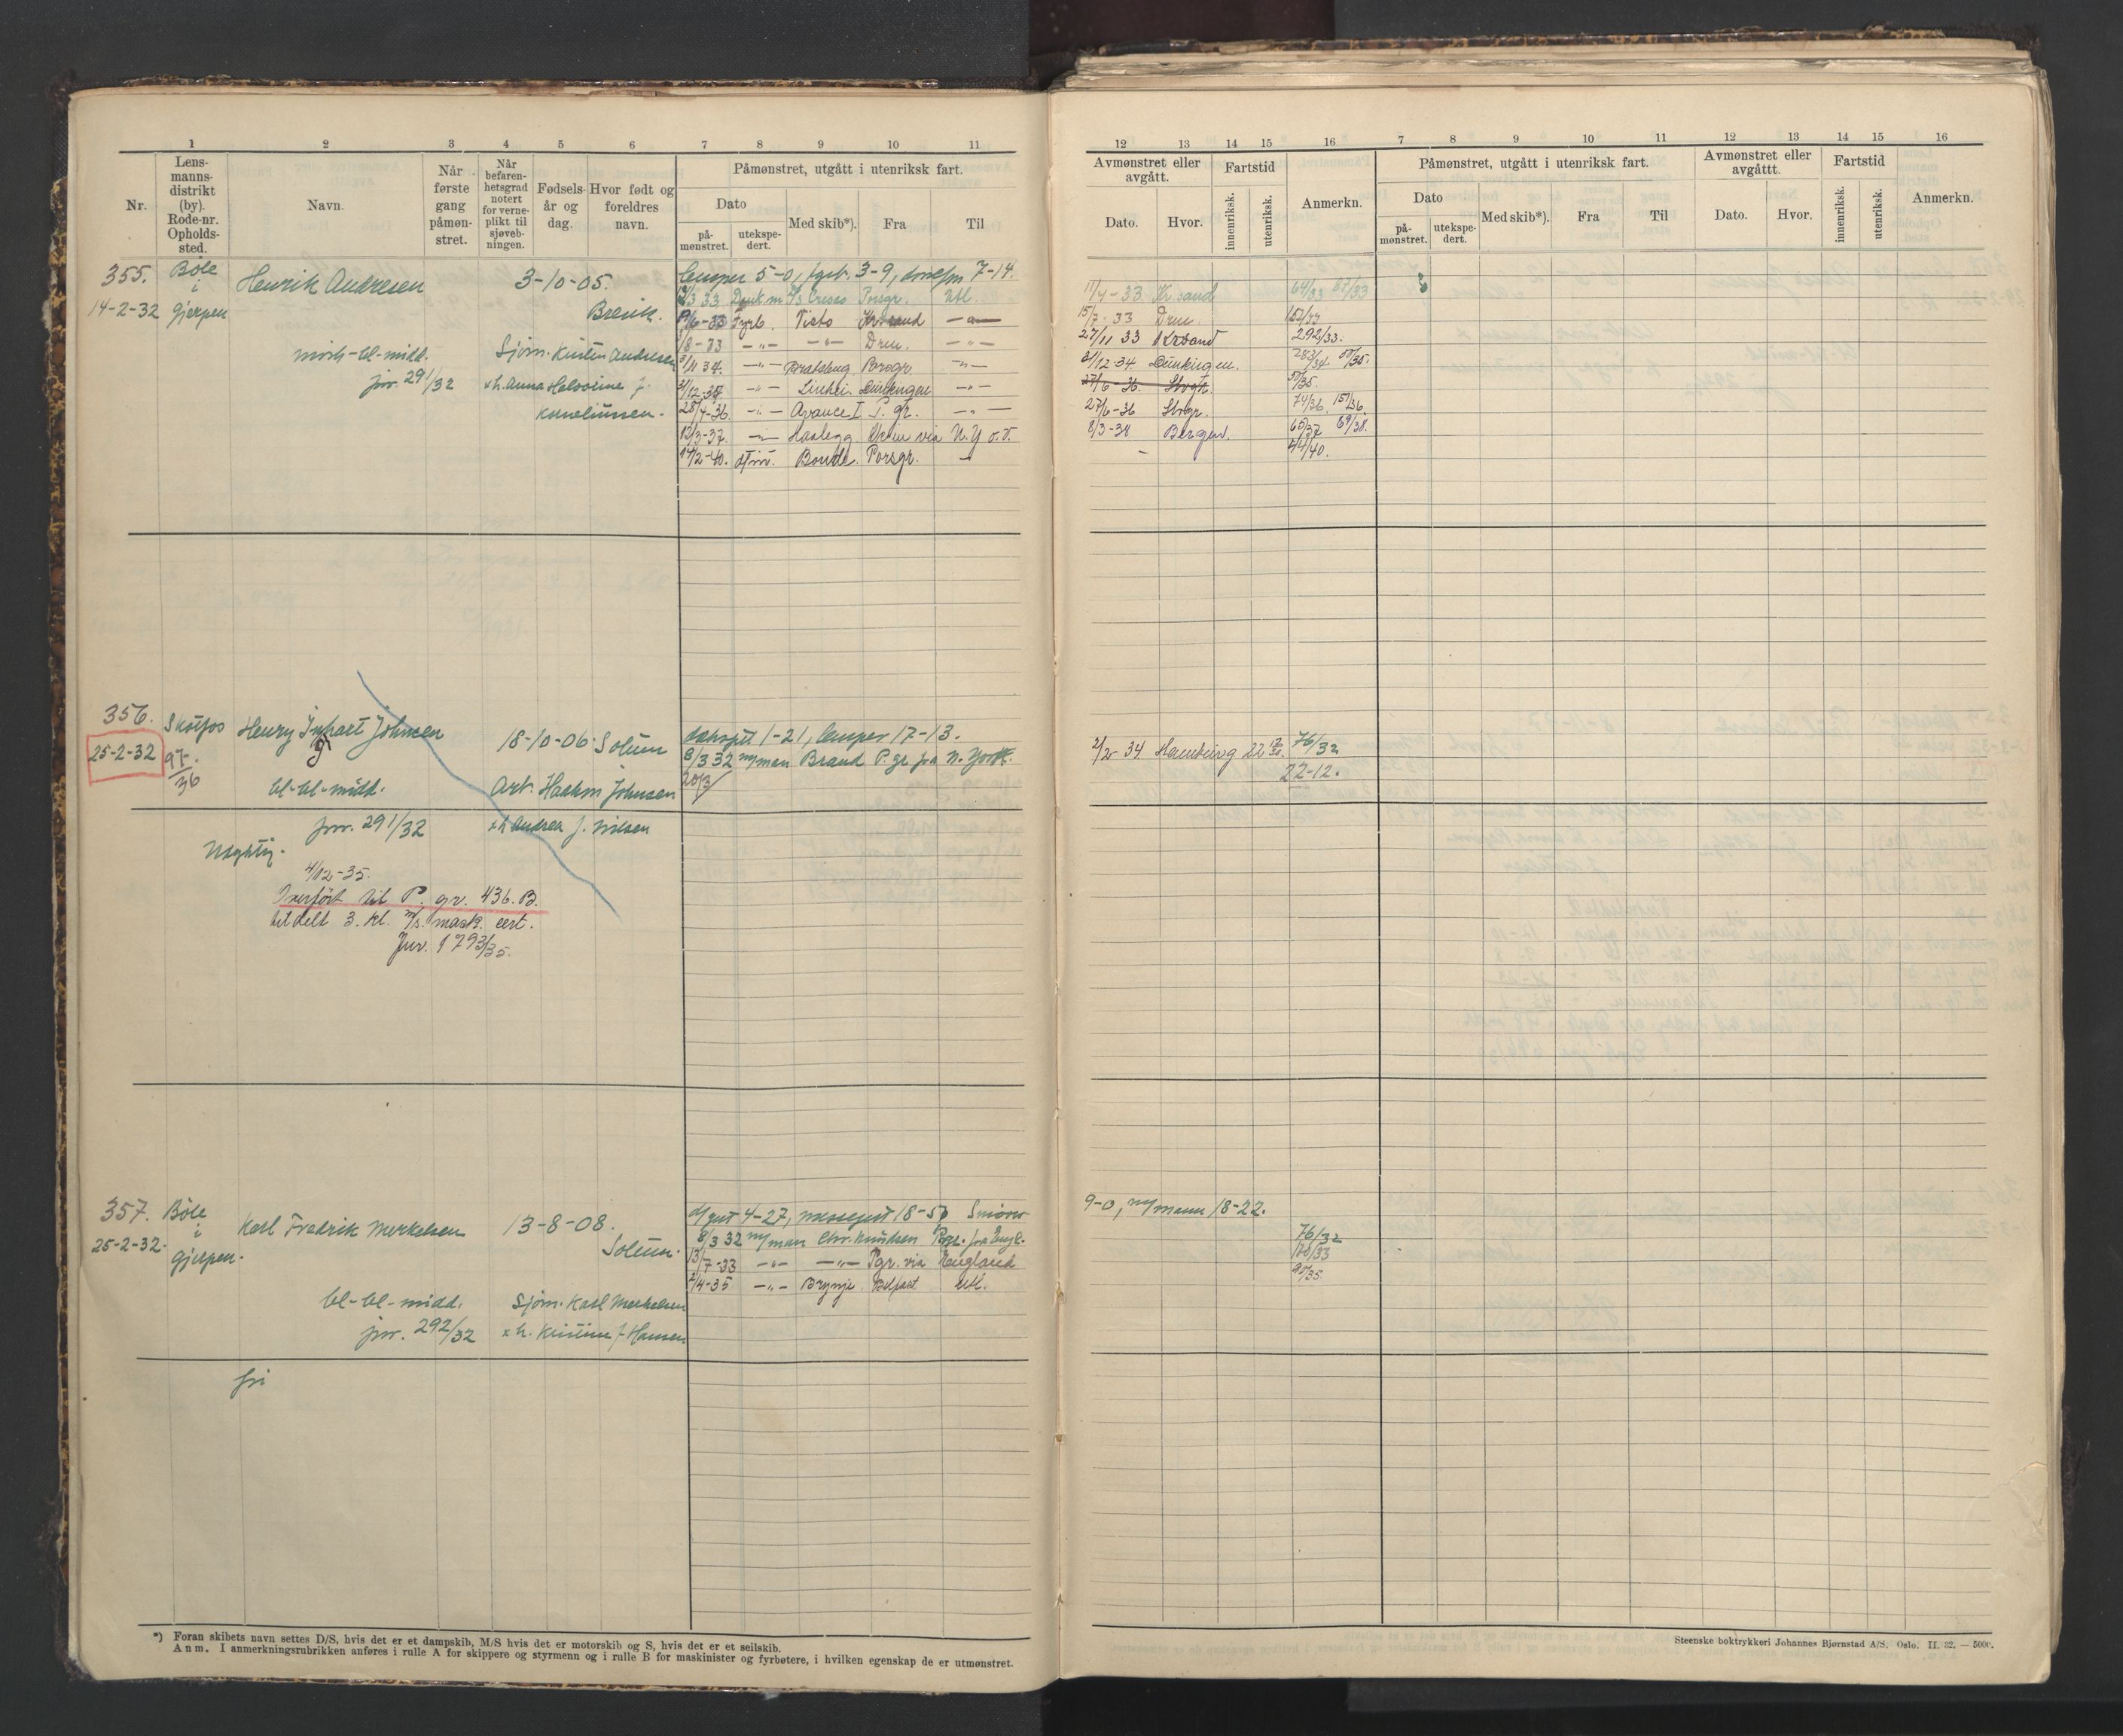 1 2 3 4 5 6 7 8 9 10 11
Nr.
Lens-
manns-
distrikt
(by).
Rode-nr.
Opholds-
sted.
Navn.
Når
første
gang
påmøn-
stret.
Når
befaren-
hetsgrad
notert
for verne-
plikt til
sjøveb-
ningen.
Fødsels-
år og
dag.
Hvor født og
foreldres
navn.
Påmønstret, utgått i utenriksk fart.
Dato
på-
mønstret.
utekspe-
dert.
Med skib*).
Fra
Til
355. Böle Henrik Andresen 3-10-05. lemper 5-0, fyrb. 3-9, 7-14.
14-2-32 i Gjerpen Brevik.
33 Donk.m. D/S Cresco Porsgr. Utl.
19/6-33 Fyrb. Visto Kr.sand -"-
1/8-33 -"- -"- Drm. -"-
mörk-bl-midd. Sjöm. Kristen Andresen
34. -"- Bratsberg Porsgr. -"-
jnr. 291/32 x h. Anna Halvorine f.
-"- -"-
Korneliussen.
28/4-36. -"- Avance I P.gr. -"-
12/3-37. -"- Haalegg Skien via N.Y o.v.
14/2-40. Bonde. Porsgr. -
356. Skotfos Henry Johnsen 18-10-06 Solum dæksgutt 1-21, lemper 17-13.
25-2-32 97/36
8/3 32 m/man Brand P.gr fra N. York.
20/3
bl-bl-midd. Arb. Haakon Johnsen
jnr. 291/32 x h Andrea f. Nilsen
Ugyldig.
4/12-35.
Overført til P. gr. 436. B.
tildelt 3. kl. m/s. mask. cert.
Jnr. 1793/35.
357. Böle Karl Fredrik Merkelsen 13-8-08. d/gut 4-27, messegut 18-5, Smörer
25-2-32. i Gjerpen. Solum.
8/3 32 m/man Chr. Knudsen Pgr. fra Engl.
13/7-33 -"- -"- Pgr. via England
2/4-35 -"- Brynje Belfast Utl.
bl-bl-midd. Sjöm. Karl Merkelsen
jnr. 292/32 x h. Kristine f. Hansen
fri
*) Foran skibets navn settes D/S, hvis det er et dampskib, M/S hvis det er motorskib og S, hvis det er et seilskib.
Anm. I anmerkningsrubrikken anføres i rulle A for skippere og styrmenn og i rulle B for maskinister og fyrbøtere, i hvilken egenskap de er utmønstret.
12 13 14 15 16 7 8 9 10 11 12 13 14 15 16
Avmønstret eller
avgått.
Dato.
Hvor.
Fartstid
innenriksk.
utenriksk.
Anmerkn.
Påmønstret, utgått i utenriksk fart.
Dato
på-
mønstret.
utekspe-
dert.
Med skib*).
Fra
Til
Avmønstret eller
avgåttt.
Dato.
Hvor.
Fartstid
innenriksk.
utenriksk.
Anmerkn.
11/4-33. Kr.sand 64/33 67/33
15/7-33 Drm. 152/33
27/11 33 Krsand 292/33.
31/12-34 283/34 50/35.
27/6-36 50/35.
27/6-36 74/36. 151/36.
8/3-38 Bergen. 60/37 69/38.
- 44/40.
2/2-34. Hamburg 76/32
22-12.
9-0, m/mann 18-22.
76/32
176/33
90/35
Steenske boktrykkeri Johannes Bjørnstad A/S. Oslo. II. 32. — 5000.